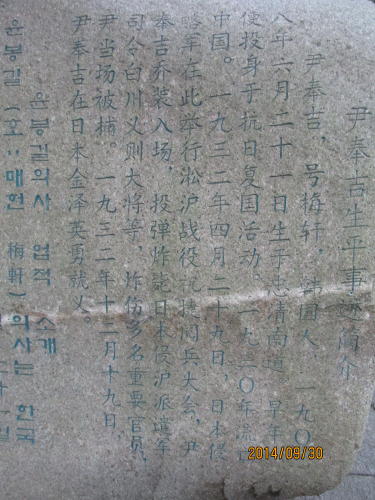 尹奉吉生平事迹简介
尹奉吉，号梅轩，韩国人。一九〇
八年六月二十一日生于忠清南道，早年
便投身于抗日复国活动。一九三〇年流
中国。一九三二年四月二十九日，日本侵
略军在此举行淞沪战役祝捷阅兵大会，尹
奉吉乔装入场，投弹炸毙日本侵沪派遣军
司令白川义则大将等，炸伤多名重要官员，
尹当场被捕。一九三二年十二月十九日，
尹奉吉在日本金泽英勇就义。
윤봉길의사 업적 소개
윤봉길 (호:매헌 梅軒) 의사는 한국
2014/09/30